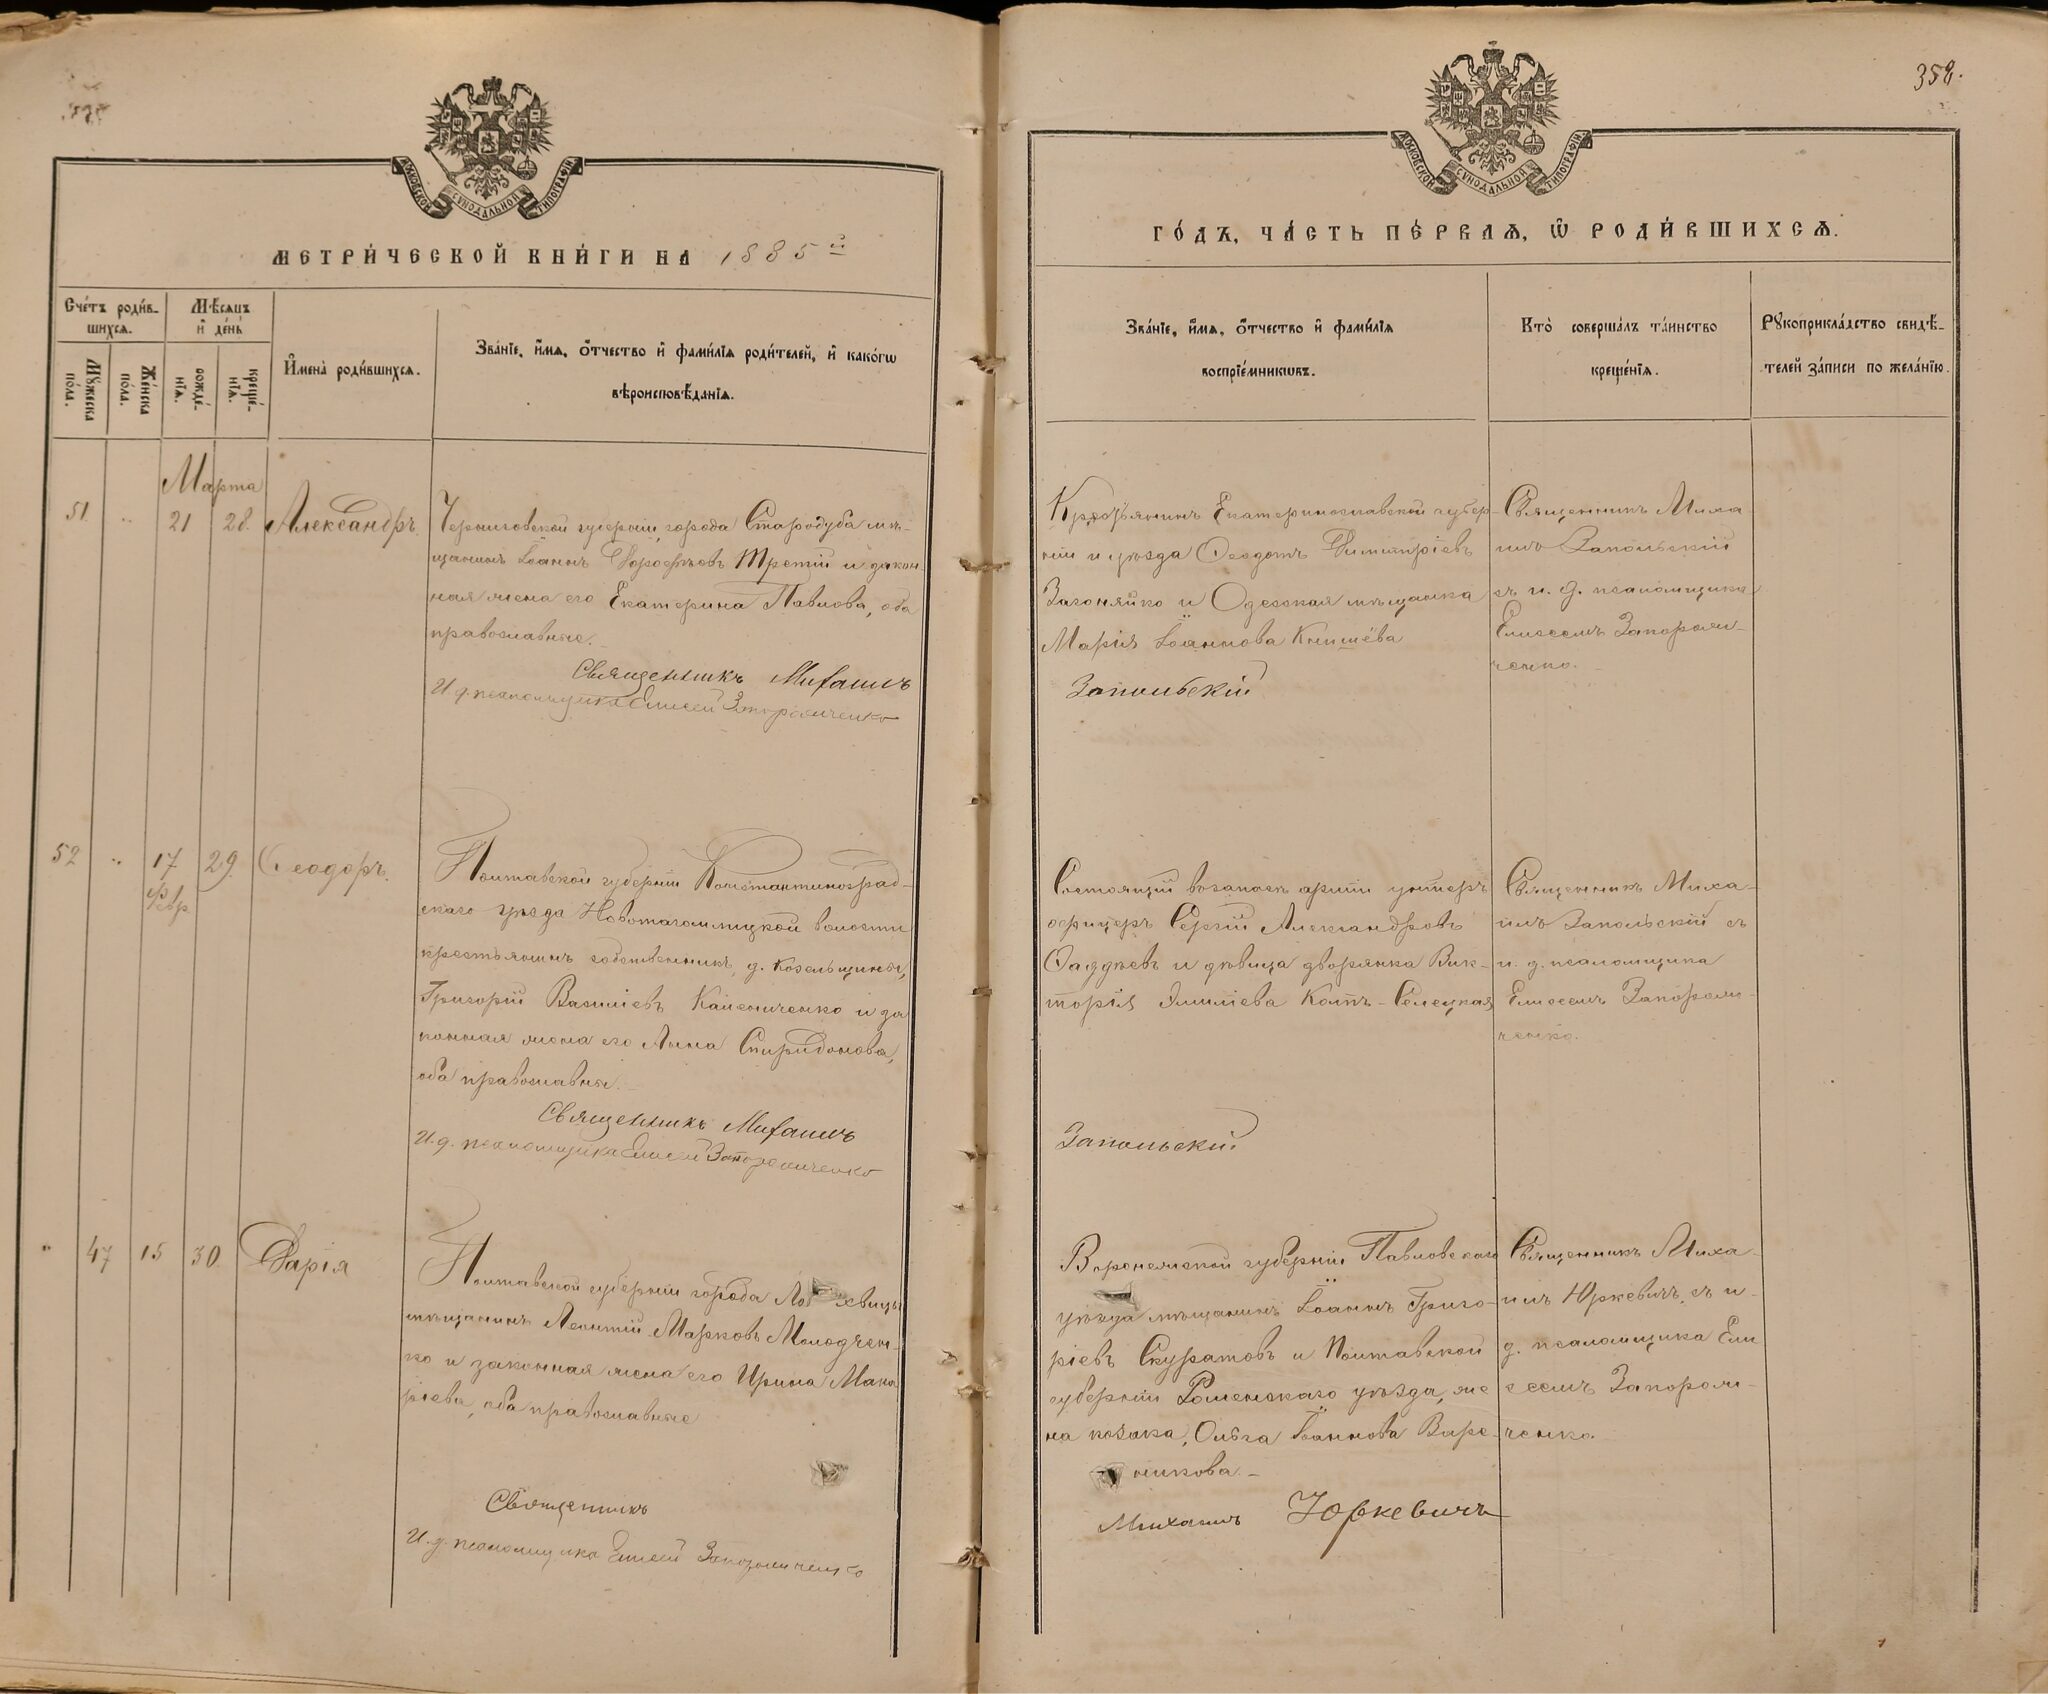 358.
МОСКОВСКОЙ СѴНОДАЛЬНОЙ ТИПОГРАФІИ
МЕТРИ́ЧЕСКОЙ КНИ́ГИ НА 1885 й
Сче́тъ роди́в-
шихсѧ.
Мѣ́сѧцъ
и҆ де́нь
Мꙋ́жеска
по́ла.
Же́нска
по́ла.
рожде́-
нїѧ.
креще́-
нїѧ.
И҆мена̀ роди́вшихсѧ.
Зва́нїе, и҆́мѧ, ѻ҆́тчество и҆ фами́лїѧ роди́телей, и҆ како́гѡ
вѣроисповѣ́данїѧ.
Марта
51 " 21 28. Александръ.
Черниговской губерніи, города Стародуба мѣ-
щанинъ Іоаннъ Дороѳеевъ Третій и закон-
ная жена его Екатерина Павлова, оба
православные.
Священникъ Михаилъ
И. д. псаломщика Елисей Запорожченко
52 " 17 29. Ѳеодоръ.
Февр
Полтавской губерніи Константиноград-
скаго уѣзда Новотагамлицкой волости
крестьянинъ собственникъ, д. Козельщины,
Григорій Василіевъ Калениченко и за
конная жена его Анна Спиридонова,
оба православные.
Священникъ Михаилъ
И. д. псаломщика Елисей Запорожченко
" 47 15 30. Дарія
Полтавской губерніи города Лохвицы
мѣщанинъ Леонтій Марковъ Молодчен-
ко и законная жена его Ирина Мака
ріева, оба православные
Священникъ
И. д. псаломщика Елисей Запорожченко
ГО́ДЪ, ЧА́СТЬ ПЕ́РВАѦ, Ѡ҆ РОДИ́ВШИХСѦ.
Зва́нїе, и҆́мѧ, ѻ҆́тчество и҆ фами́лїѧ
воспрїе́мникѡвъ.
Кто̀ соверша́лъ та́инство
креще́нїѧ.
Рꙋкоприкла́дство свидѣ́-
телей за́писи по жела́нїю.
Крестьянинъ Екатеринославской губер-
ніи и уѣзда Ѳеодотъ Димитріевъ
Загоняйко и Одесская мѣщанка
Марія Іоаннова Кнышёва
Запольскій
Священникъ Миха-
илъ Запольскій
съ и. д. псаломщика
Елисеемъ Запорож-
ченко.
Состоящій въ запасѣ арміи унтеръ
офицеръ Сергій Александровъ
Ѳаддѣевъ и дѣвица дворянка Вик-
торія Эмиліева Контъ-Селецкая
Запольскій
Священникъ Миха-
илъ Запольскій съ
и. д. псаломщика
Елисеемъ Запорож-
ченко.
Воронежской губерніи Павловскаго
уѣзда мѣщанинъ Іоаннъ Григо-
ріевъ Скуратовъ и Полтавской
губерніи Роменскаго уѣзда, же
на козака, Ольга Іоаннова Вире-
никова.
Михаилъ Юркевичъ
Священникъ Миха-
илъ Юркевичъ, съ и.
д. псаломщика Ели
сеемъ Запорож-
ченко.